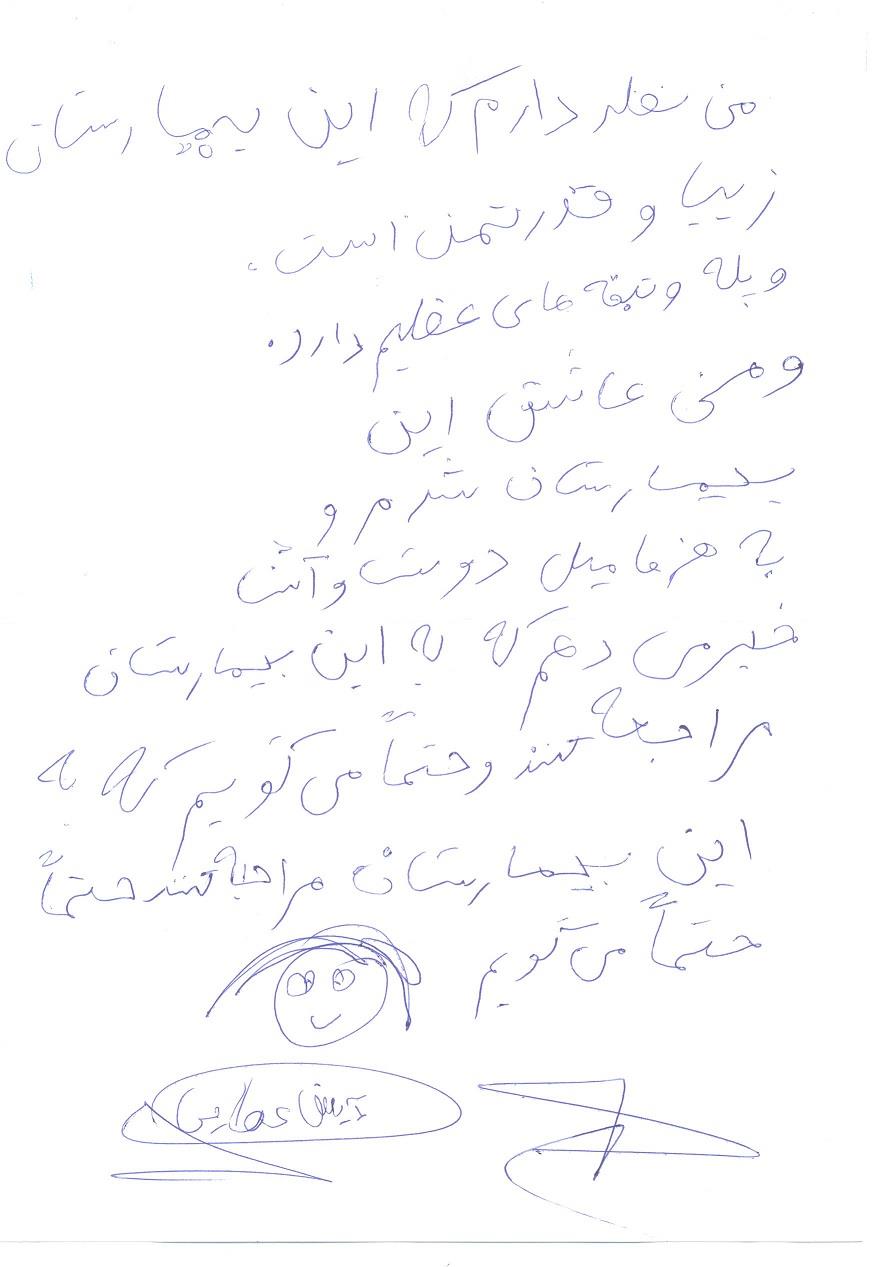 من نظر دارم که این بیمارستان
زیبا و قدرتمند است.
و پله و تبقه های عظیم دارد.
و من عاشق این
بیمارستان شدم و
به هر فامیل دوست و آشنا
خبر می دهم که به این بیمارستان
مراجعه کنند و حتماً می گویم که به
این بیمارستان مراجعه کنند حتماً
حتماً می گویم